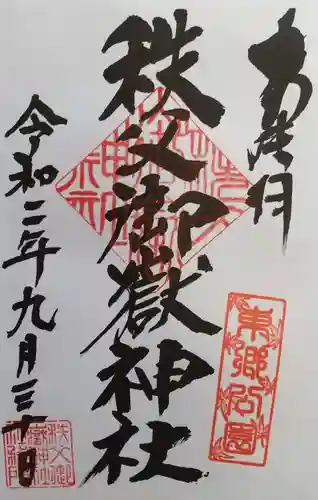 奉拝
秩父御嶽神社
東郷公園
令和二年九月三十日